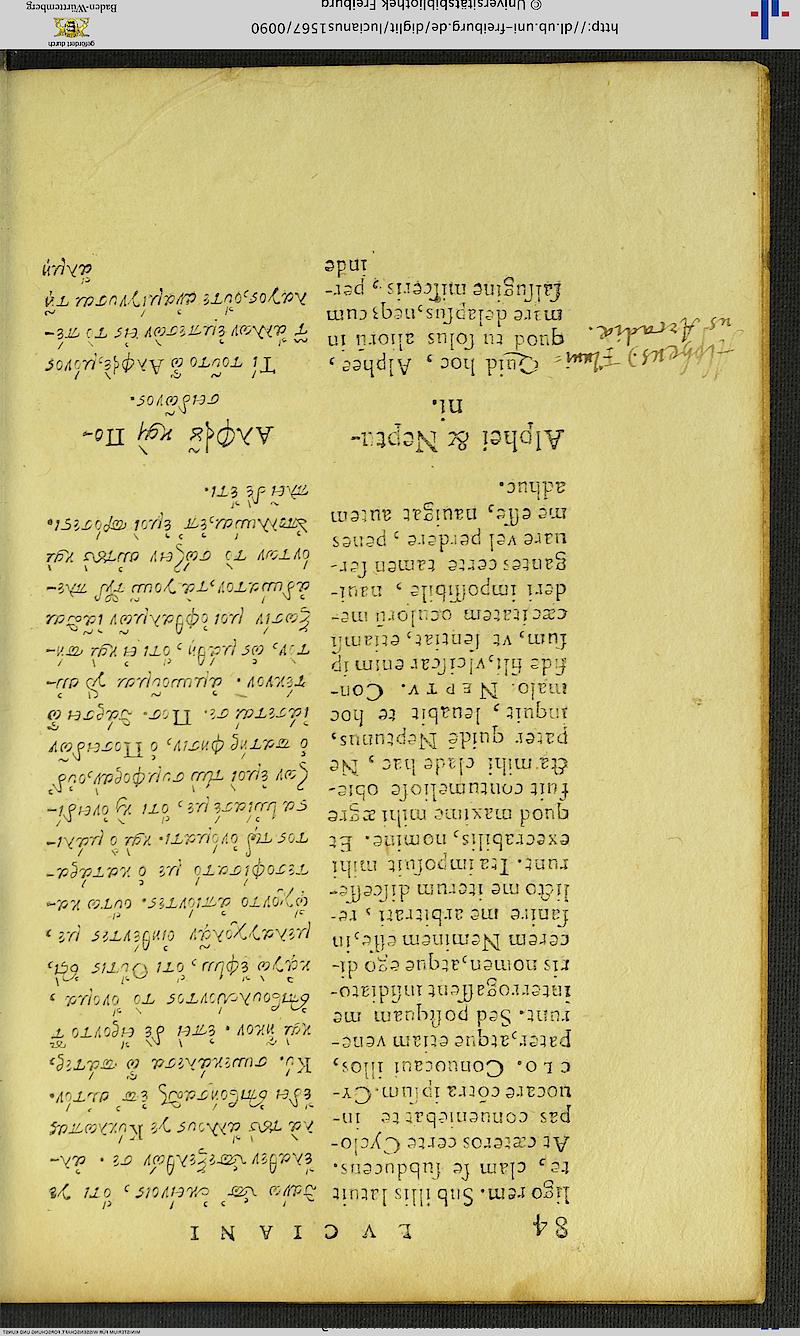 84 LVCIANI
ligo rem. Sub illis latuit
te, clam se subducens.
At cæteros certe Cyclo-
pas conueniebat te in-
uocare contra ipsum. Cy-
clo. Conuocaui illos,
pater, atque etiam vene-
runt. Sed postquam me
interrogassent insidiato-
ris nomen, atque ego di-
cerem Neminem esse, in
sanire me arbitrati, re-
licto me iterum discesse-
runt. Ita imposuit mihi
execrabilis, nomine. Et
quod maxime mihi ægre
fuit contumeliose obie-
cta mihi clade hac, Ne
pater quidẽ Neptunus,
inquit, sanabit te hoc
malo. NEPT. Con-
fide fili, vlciscar enim ip
sum, vt sentiat, etiamsi
cæcitatem oculorũ me-
deri impossibile, naui-
gantes certe tamen ser-
uare vel perdere, penes
me esse, nauigat autem
adhuc.
Alphei & Neptu-
ni.
Quid hoc, Alphee,
quod tu solus aliorũ in
mare delapsus, neque cum
salsugine misceris, per-
inde
ὅτι γε
ἔλαθεν ὑπεξελθών σε. ἀλ-
λὰ τοὺς ἄλλους γε Κύκλωπας
ἔδει ἐπιβοήσασθαι ἐπ' αὐτόν.
Κύ. συνεκάλεσα ὦ πάτερ,
καὶ ἧκον. ἐπεὶ δὲ ἤροντο τ
ἐπιβουλεύοντος τὸ ὄνομα,
κἀγὼ ἔφην, ὅτι Οὖτις ἐστὶ,
μελαγχολᾶν οἰηθέντες με,
ᾤχοντο ἀπιόντες. οὕτω κα-
τεσοφίσατό με ὁ κατάρα-
τος τῷ ὀνόματι. καὶ ὃ μάλι-
στα ἠνίασέ με, ὅτι καὶ ὀνειδί-
ζων ἐμοὶ τὴν συμφορὰν, οὐδ'
ὁ πατὴρ φησὶν, ὁ Ποσειδῶν
ἰάσεταί σε. Ποσ. θάρσει ὦ
τέκνον. ἀμυνοῦμαι γὰρ αὐ-
τὸν, ὡς μάθῃ, ὅτι εἰ καὶ πή-
ρωσίν μοι ὀφθαλμῶν ἰᾶσθαι
ἀδύνατον, τὰ γοῦν πλε-
όντων τὸ σώζειν αὐτοὺς καὶ
ἀπολλύναι, ἐπ' ἐμοὶ πρόσεστι.
πλεῖ δὲ ἔτι.
Ἀλφειοῦ καὶ Πο-
σειδῶνος.
Τί τοῦτο ὦ Ἀλφειὲ, μόνος
τ ἄλλων ἐμπεσὼν εἰς τὸ πέ-
λαγος, οὔτε ἀναμίγνυσαι τῇ
ἅλμῃ
http://dl.ub.uni-freiburg.de/diglit/lucianus1567/0090
© Universitätsbibliothek Freiburg
gefördert durch
Baden-Württemberg
MINISTERIUM FÜR WISSENSCHAFT, FORSCHUNG UND KUNST